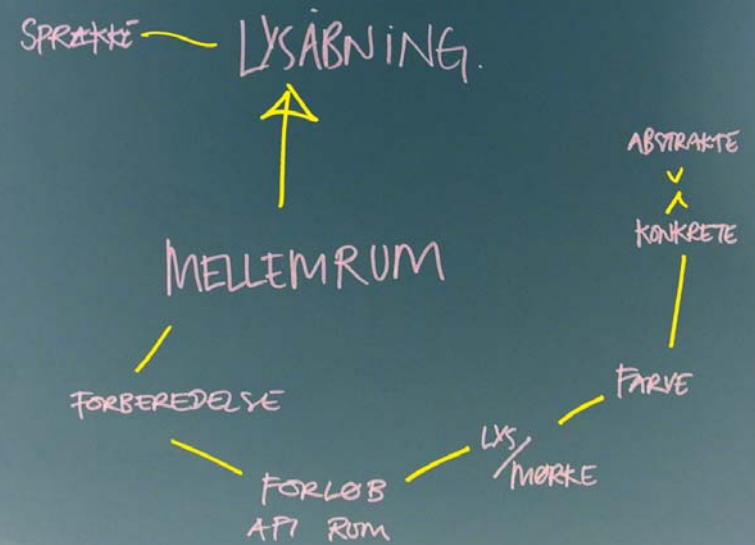 SPRÆKKE
LYSÅBNING.
ABSTRAKTE
KONKRETE
MELLEMRUM
FARVE
FORBEREDELSE
LYS/
MØRKE
FORLØB
API RUM